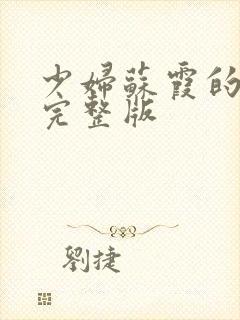 少婦蘇霞的
完整版
劉捷